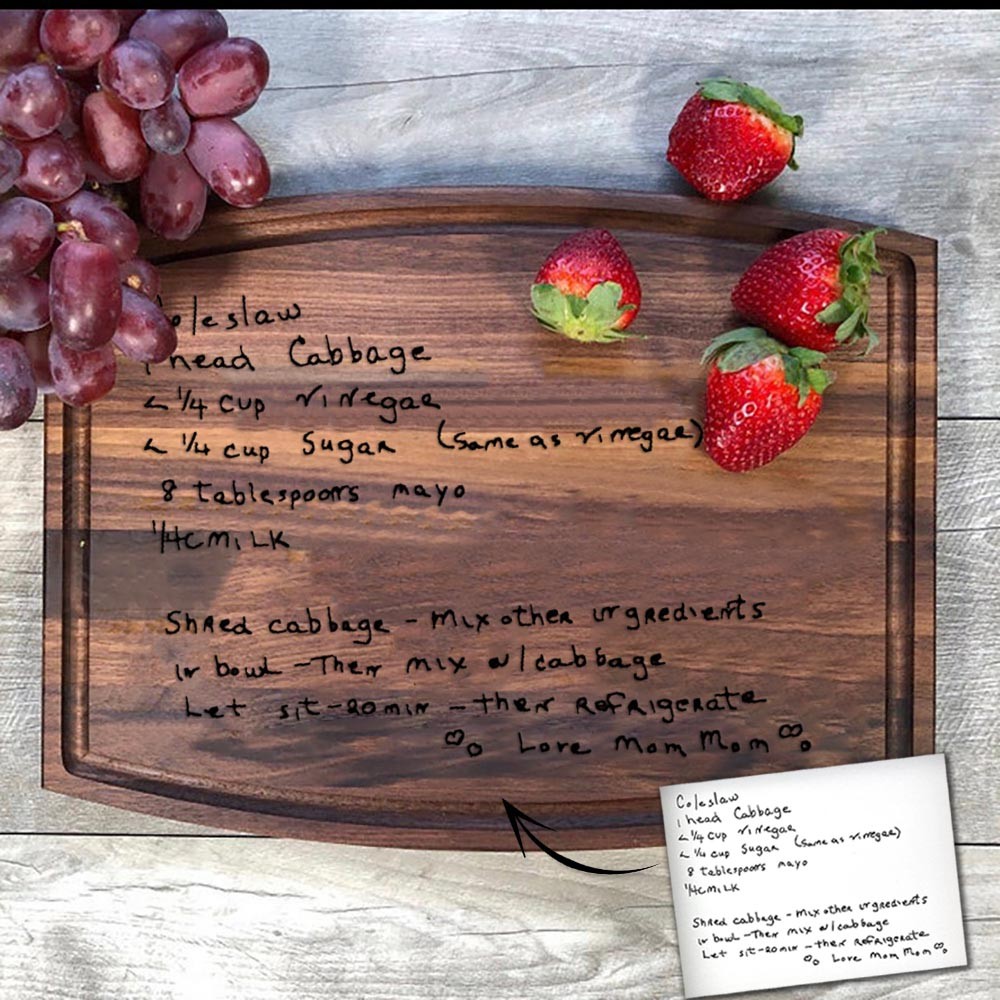 Coleslaw
1 head Cabbage
< 1/4 cup vinegar
< 1/4 cup Sugar (same as vinegar)
8 tablespoons mayo
1/4 c MiLK
Shred cabbage - Mix other ingredients
in bowl - Then mix w/cabbage
Let sit - 20 min - then Refrigerate
Love Mom Mom
Coleslaw
1 head Cabbage
< 1/4 cup vinegar
< 1/4 cup Sugar (same as vinegar)
8 tablespoons mayo
1/4 c MiLK
Shred cabbage - Mix other ingredients
in bowl - Then mix w/cabbage
Let sit - 20 min - then Refrigerate
Love Mom Mom